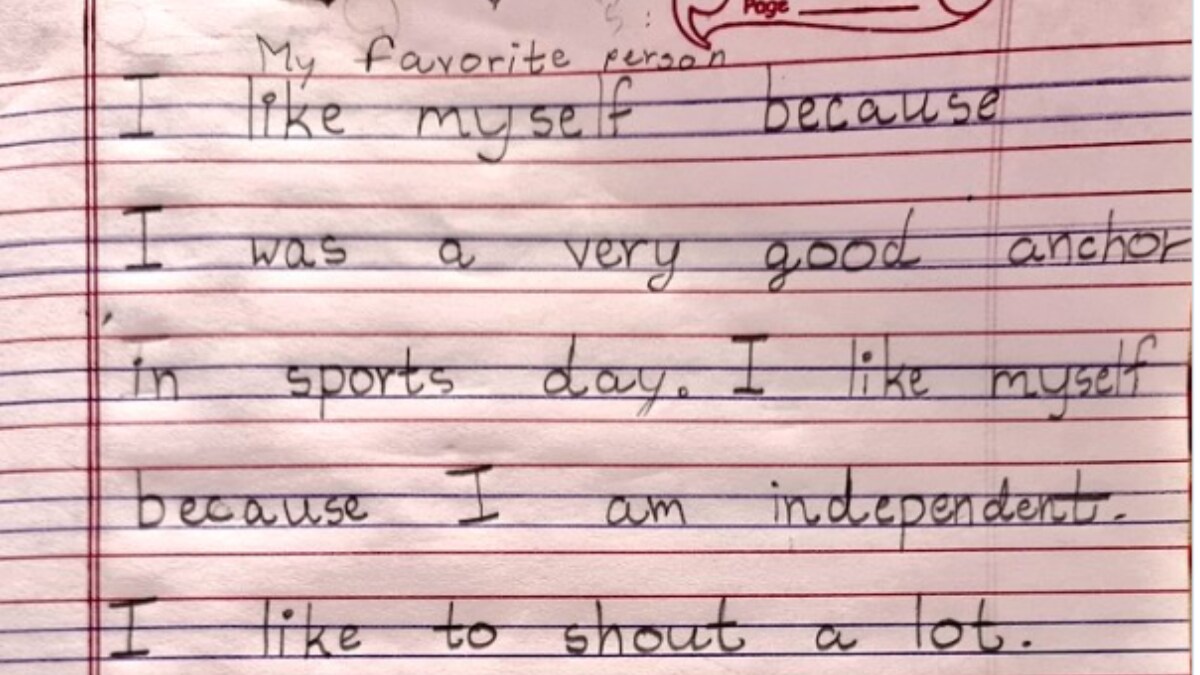 Page
My favorite person
I like myself because
I was a very good anchor
in sports day. I like myself
because I am independent.
I like to shout a lot.